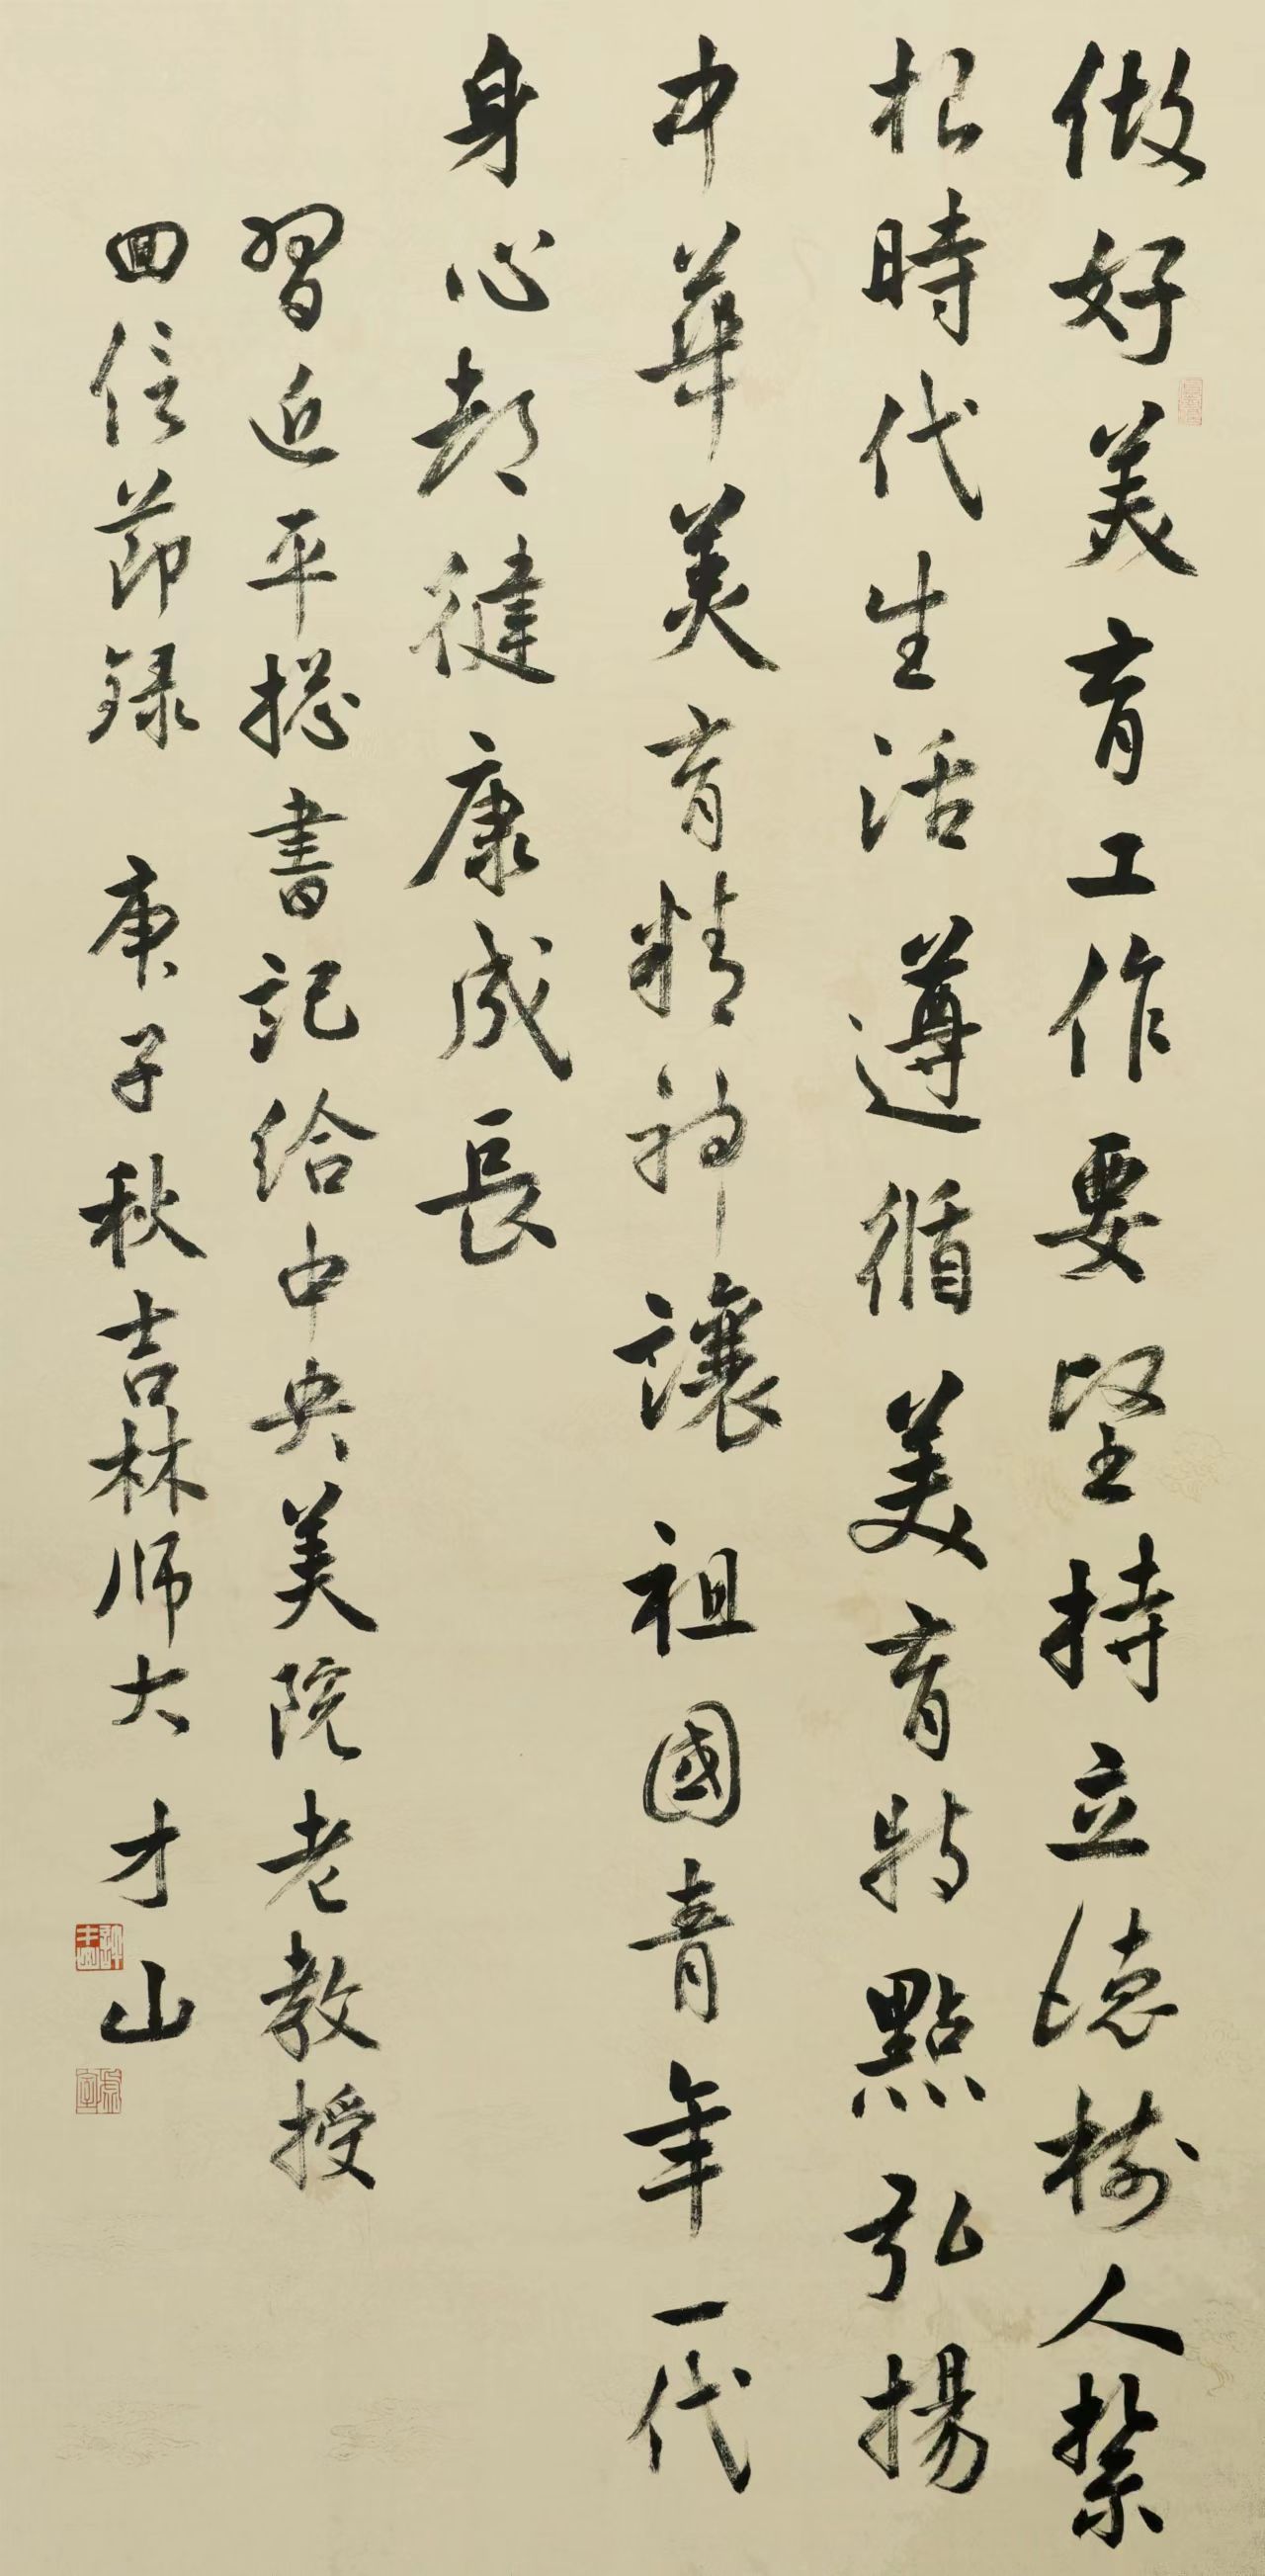 做好美育工作要坚持立德樹人紮
根時代生活遵循美育特點弘揚
中華美育精神讓祖國青年一代
身心都健康成長
習近平總書記给中央美院老教授
回信節録 庚子秋吉林师大 才山